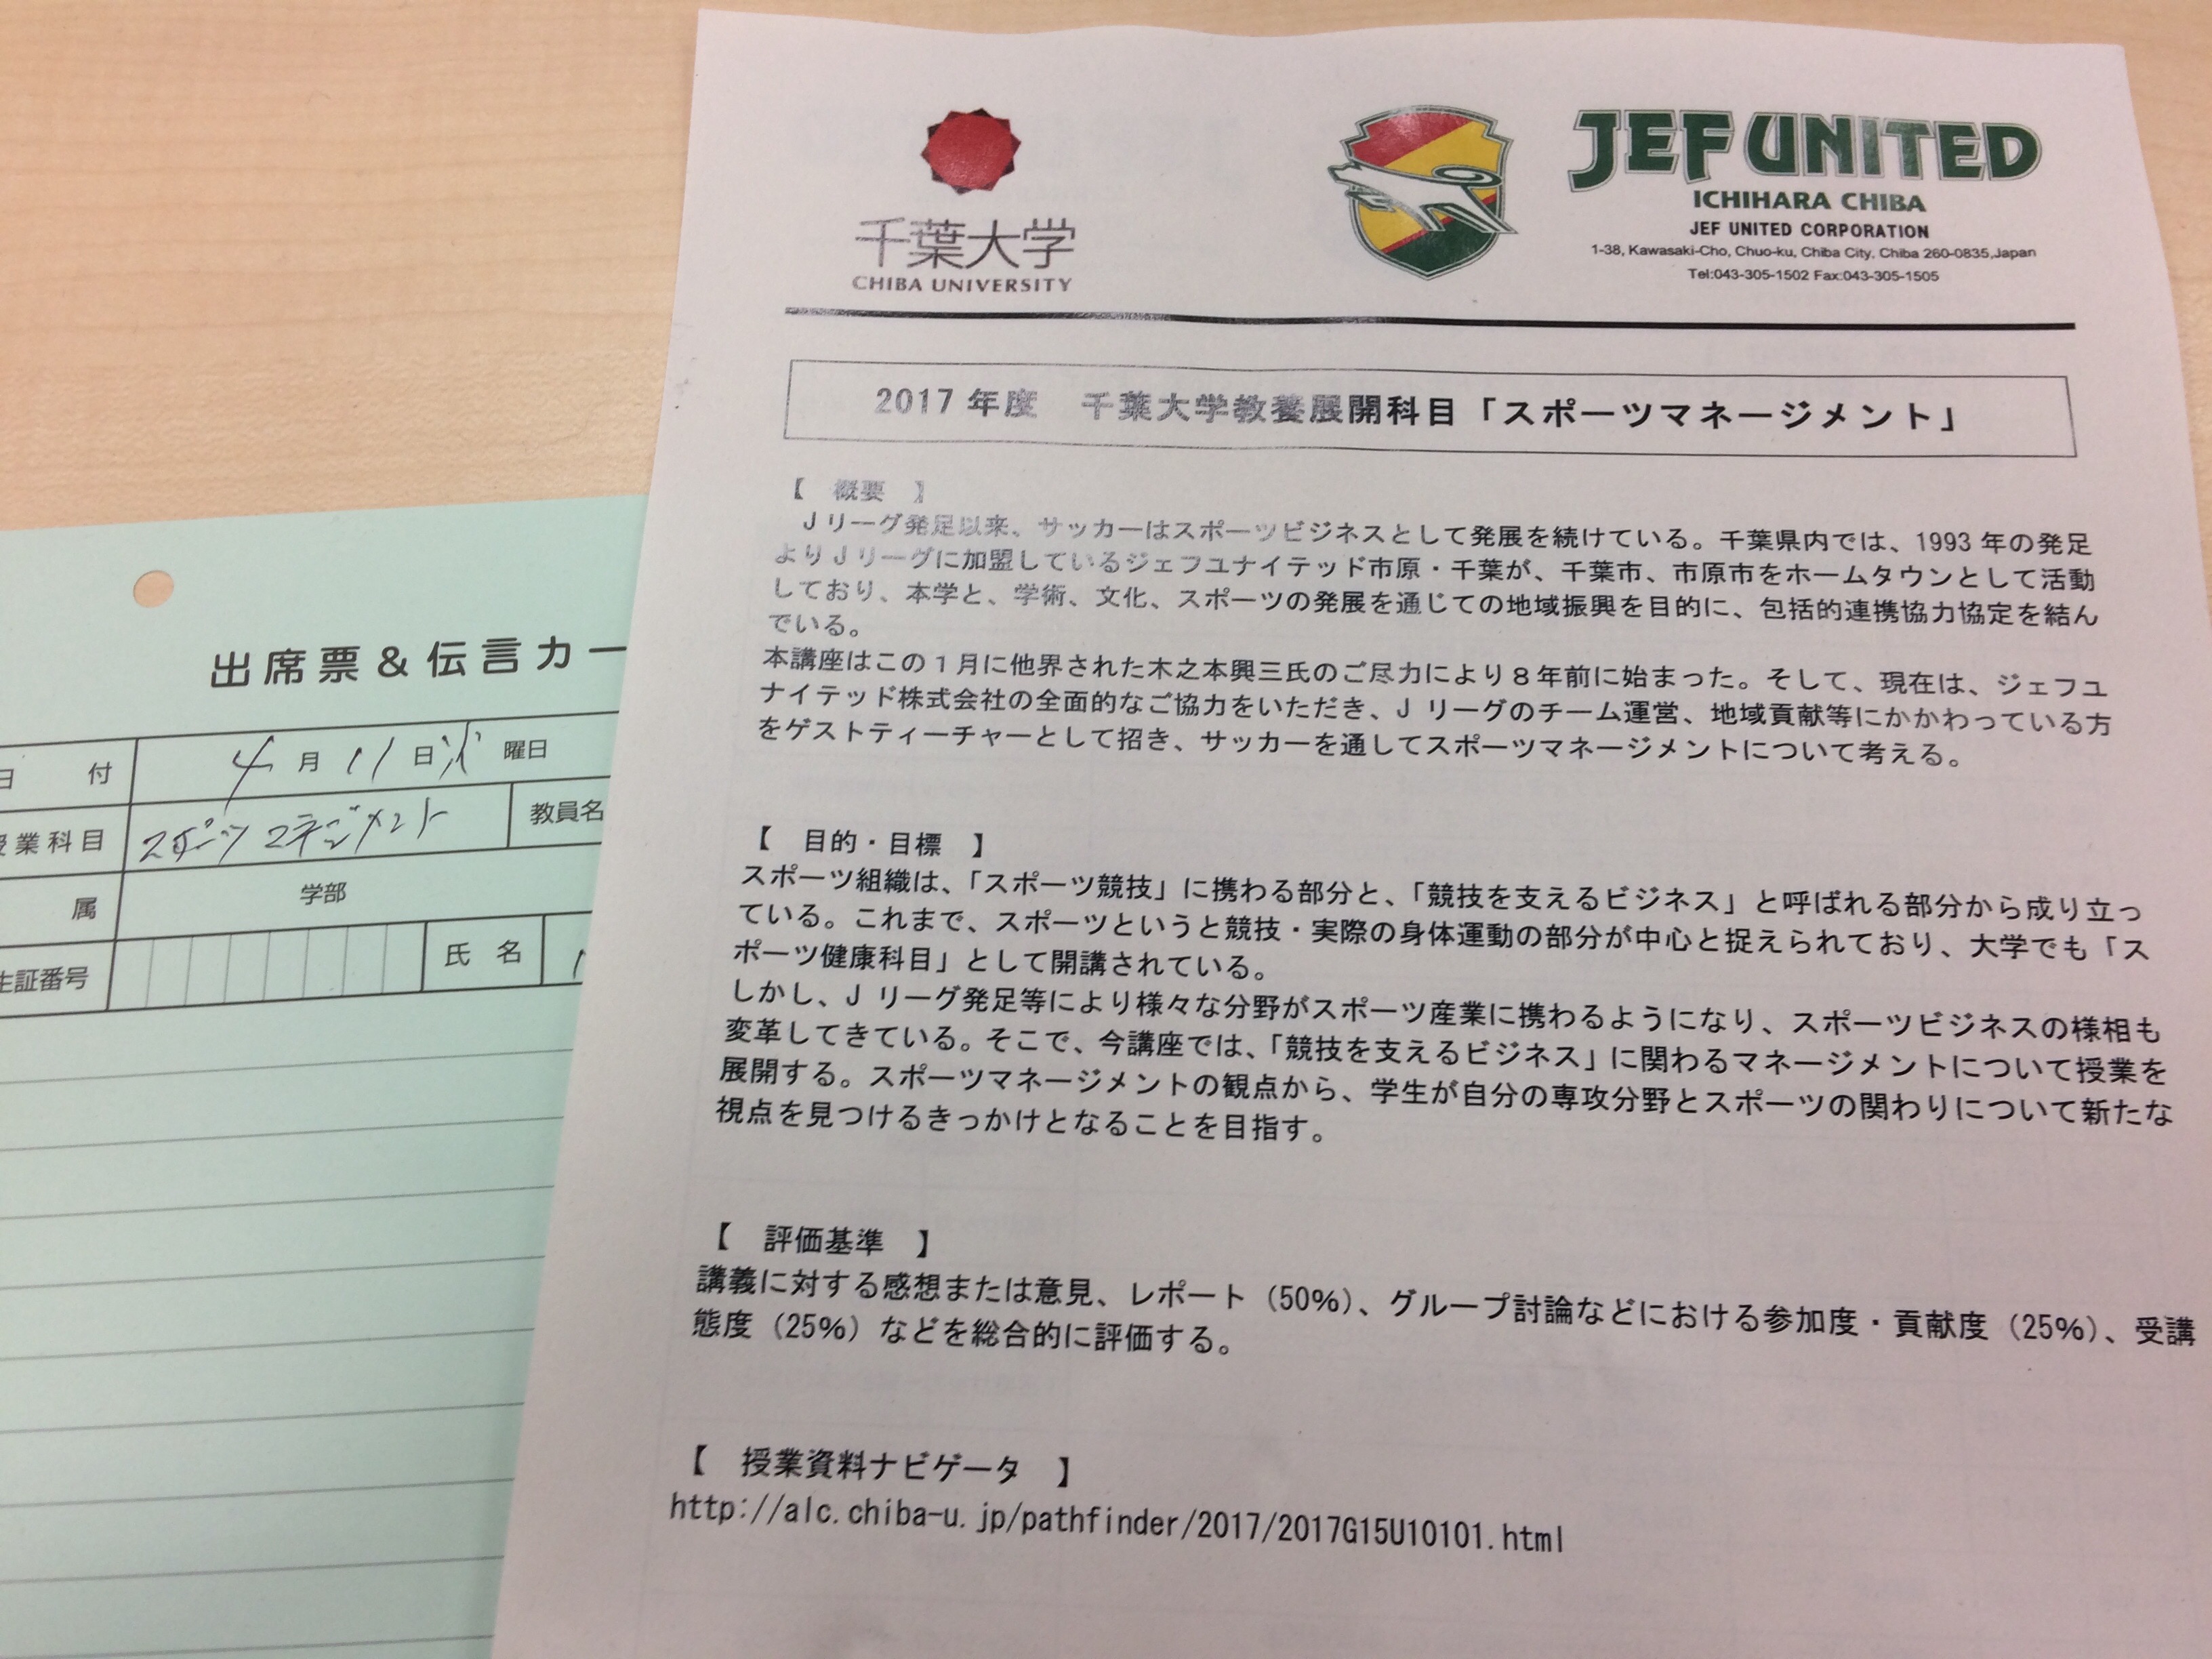 千葉大学
CHIBA UNIVERSITY
JEF UNITED
ICHIHARA CHIBA
JEF UNITED CORPORATION
1-38, Kawasaki-Cho, Chuo-ku, Chiba City, Chiba 260-0835,Japan
Tel:043-305-1502 Fax:043-305-1505
2017 年度　千葉大学教養展開科目「スポーツマネージメント」
【　概要　】
Jリーグ発足以来、サッカーはスポーツビジネスとして発展を続けている。千葉県内では、1993 年の発足
よりJリーグに加盟しているジェフユナイテッド市原・千葉が、千葉市、市原市をホームタウンとして活動
しており、本学と、学術、文化、スポーツの発展を通じての地域振興を目的に、包括的連携協力協定を結ん
でいる。
本講座はこの1月に他界された木之本興三氏のご尽力により8年前に始まった。そして、現在は、ジェフユ
ナイテッド株式会社の全面的なご協力をいただき、J リーグのチーム運営、地域貢献等にかかわっている方
をゲストティーチャーとして招き、サッカーを通してスポーツマネージメントについて考える。
【　目的・目標　】
スポーツ組織は、「スポーツ競技」に携わる部分と、「競技を支えるビジネス」と呼ばれる部分から成り立っ
ている。これまで、スポーツというと競技・実際の身体運動の部分が中心と捉えられており、大学でも「ス
ポーツ健康科目」として開講されている。
しかし、J リーグ発足等により様々な分野がスポーツ産業に携わるようになり、スポーツビジネスの様相も
変革してきている。そこで、今講座では、「競技を支えるビジネス」に関わるマネージメントについて授業を
展開する。スポーツマネージメントの観点から、学生が自分の専攻分野とスポーツの関わりについて新たな
視点を見つけるきっかけとなることを目指す。
【　評価基準　】
講義に対する感想または意見、レポート（50%）、グループ討論などにおける参加度・貢献度（25%）、受講
態度（25%）などを総合的に評価する。
【　授業資料ナビゲータ　】
http://alc.chiba-u.jp/pathfinder/2017/2017G15U10101.html
出席票＆伝言カー
日　付　4月11日火曜日
授業科目　スポーツマネジメント　教員名
属　学部
生証番号　氏名